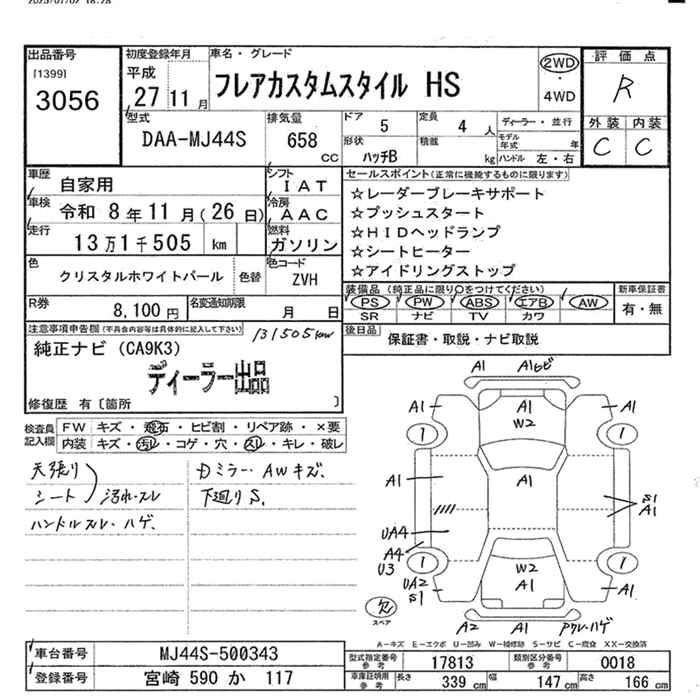 2025/07/02 18:28
出品番号
[1399]
3056
初度登録年月
平成
27 11 月
車名・グレード
フレアカスタムスタイル HS
2WD
・
4WD
評価点
R
外装 内装
C C
型式
DAA-MJ44S
排気量
658
cc
ドア 5
定員 4 人
ディーラー・並行
形状 ハッチB
積載 kg
モデル年式 年
ハンドル 左・右
車歴 自家用
シフト IAT
車検 令和 8年11月(26日)
冷房 AAC
走行 13万1千505 km
燃料 ガソリン
色 クリスタルホワイトパール 色替
色コード ZVH
R券 8,100円
名変通知期限 月 日
セールスポイント(正常に機能するものに限ります)
☆レーダーブレーキサポート
☆プッシュスタート
☆HIDヘッドランプ
☆シートヒーター
☆アイドリングストップ
装備品(純正品に限り○をつけてください)
PS PW ABS エアB AW
SR ナビ TV カワ
新車保証書
有・無
後日品 保証書・取説・ナビ取説
注意事項申告欄(不具合内容等は具体的に記入して下さい)
131505km
純正ナビ(CA9K3)
ディーラー出品
修復歴 有〔箇所 〕
検査員記入欄
FW キズ・飛石・ヒビ割・リペア跡・×要
内装 キズ・汚レ・コゲ・穴・スレ・キレ・破レ
天張り
シート 汚れ・スレ
ハンドルスレ・ハゲ
Dミラー・AWキズ
下廻りS.
A1 A1ヒビ
A1 A1 A1
W2
1 1
A1 A1
S1
A1
UA4
A4
U3
1 1
W2
A1
UA2
S1
A1
A2 A1 Aワレ・ハゲ
欠
スペア
A-キズ E-エクボ U-凹み W-補修跡 S-サビ C-腐食 XX-交換済
車台番号 MJ44S-500343
登録番号 宮崎 590 か 117
型式指定番号 参考 17813
類別区分番号 参考 0018
車庫証明用 参考 長さ 339 cm 幅 147 cm 高さ 166 cm